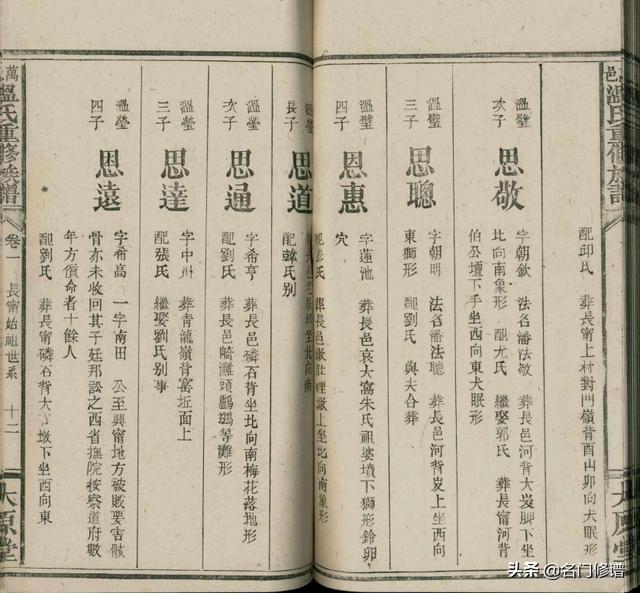 邑溫氏重修族譜
大原堂
配邱氏 葬長甯上村對門嶺背酉山卯向犬眠形
溫璧
次子
思敬
字朝欽 法名潘法敬 葬長邑河背大岌脚下坐
比向南象形 配尤氏 繼娶郭氏 葬長甯河背
伯公壇下手坐西向東犬眠形
溫璧
三子
思聰
字朝明 法名潘法聰 葬長邑河背岌上坐西向
東獅形 配劉氏 與夫合葬
溫璧
四子
思惠
字蓮池 葬長邑哀大窩朱氏祖婆墳下獅形鈴卯
穴
溫瑩
長子
思道
配鍾氏別
溫瑩
次子
思通
字希亨 葬長邑磷石背坐北向南梅花落地形
配劉氏 葬長邑崎灘頭鸕鶿等灘形
溫瑩
三子
思達
字中州 葬青龍嶺背窰坵面上
配張氏 繼娶劉氏別事
溫瑩
四子
思遠
字希高 一字南田 公至興甯地方被賊要害骸
骨亦未收回其子廷邦訟之西省撫院按察道府數
年方償命者十餘人
配劉氏 葬長甯磷石背大富墩下坐西向東
萬
溫氏重修族譜
卷一
長甯始祖世系
十二
大原堂
头条 @名门修谱